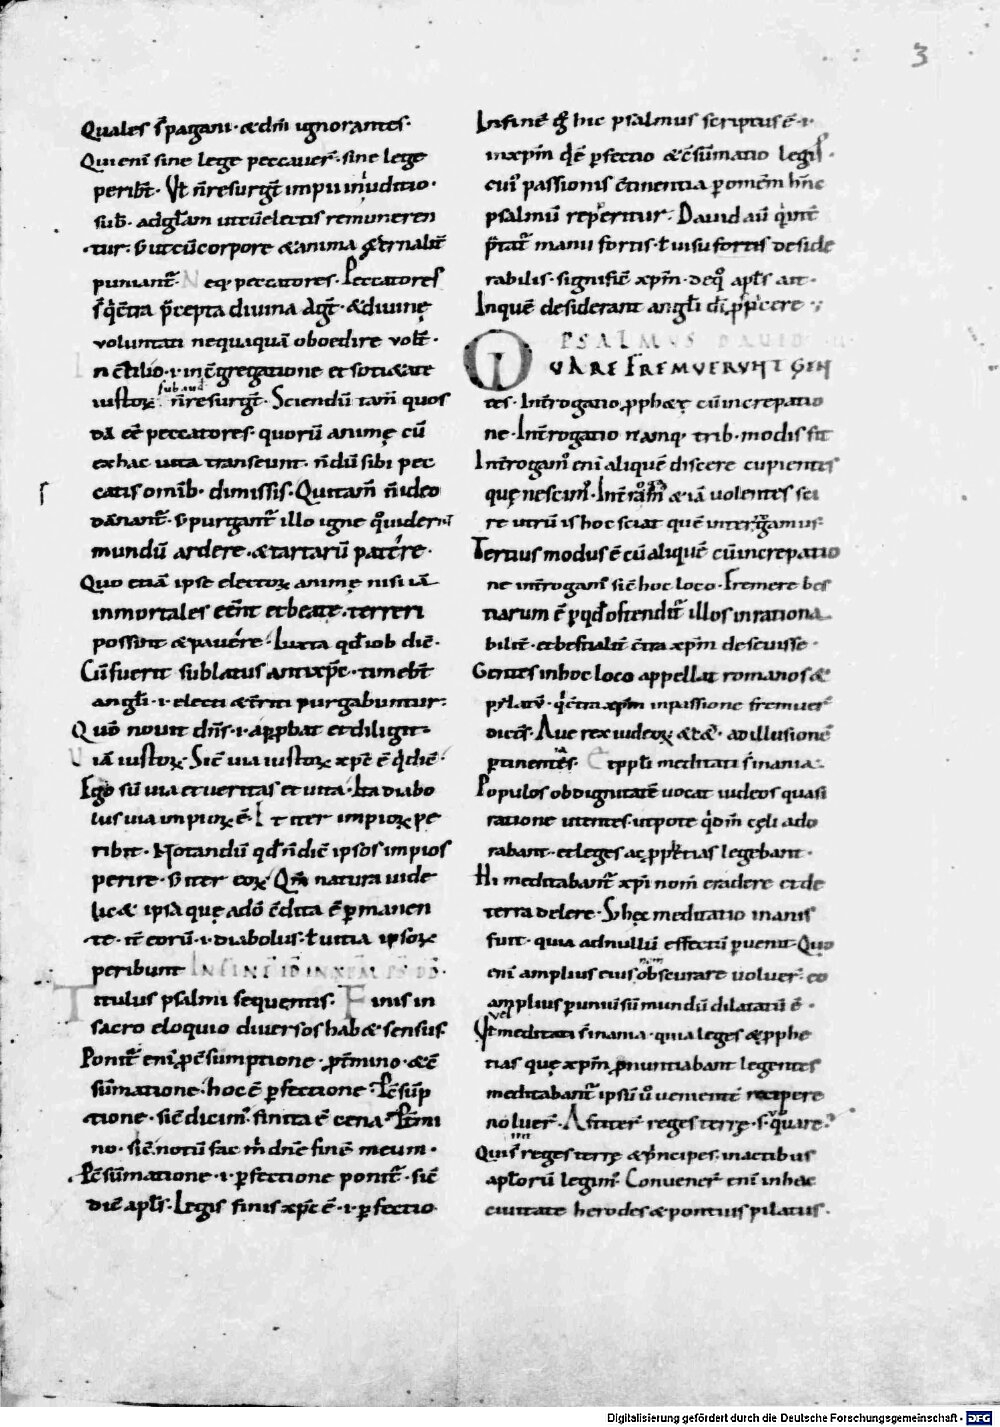 3
Quales s̅ pagani · & dm̅ ignorantes ·
Qui eni̅ sine lege peccaver̅ · sine lege
perib̅t · Ut n̅ resurg̅t impii in iuditio ·
sub̅ · ad gl̅am ut cu̅ electis remuneren
tur · s; ut cu̅ corpore & anima &ernalit̅
puniant᷑ · Neq; peccatores · Peccatores
s̅ qi c̅tra p̅cepta divina ag̅t · & divinę
voluntati nequaqua̅ oboedire vol̅t ·
In c̅silio · i · in c̅gregatione et soti&ate
iustoꝝ · sub aud̅ n̅ resurg̅t · Sciendu̅ tam̅ quos
da̅ ee̅ peccatores · quoru̅ animę cu̅
ex hac vita transeunt · n̅du̅ sibi pec
catis omib; dimissis · Qui tam̅ n̅ ideo
da̅nant᷑ · s; purgant᷑ illo igne
mundu̅ ardere · & tartaru̅ patere ·
Quo etia̅ ipse electoꝝ animę nisi ia̅
inmortales eent et beatę · terreri
possint & pavere · Iuxta qd̅ iob dic̅ ·
Cu̅ fuerit sublatus antixp̅c · timeb̅t
angl̅i · i · electi & t̅riti purgabuntur ·
Quo̅ novit dn̅s · i · app̲robat et diligit ·
via̅ iustoꝝ · Sic̅ via iustoꝝ xp̅c e̅ qi dic̅ ·
Ego su̅ via et veritas et vita · Ita diabo
lus via impioꝝ e̅ · Et iter impioꝝ pe
ribit · Notandu̅ qd̅ n̅ dic̅ ipsos impios
perire · s; iter eoꝝ · Qm̅ natura vide
lic& ipsa quę a do̅ c̅dita e̅ p̲manen
te · it̅ eoru̅ · i · diabolus · ł vitia ipsoꝝ
peribunt IN FINE̅
Titulus psalmi sequentis · Finis in
sacro eloquio diversos hab& sensus
Ponit᷑ eni̅ p̲ c̅sumptione · p̲ t̅mino · & c̅
su̅matione · hoc e̅ p̲fectione · P̲ c̅su̅p
tione · sic̅ dicim᷒ · finita e̅ cena · P̲ t̅mi
no · sic̅ · notu̅ fac m̅ dn̅e fine̅ meum ·
P̲ c̅su̅matione · i · p̲fectione ponit᷑ · sic̅
dic̅ apl̅s · Legis finis xp̅c e̅ · i · p̲fectio
In fine̅ g̊ hic psalmus scriptus e̅ · i ·
in xp̅m q̅ e̅ p̲fectio & c̅su̅matio legis ·
cui᷒ passionis c̅tinentia p̲ om̅em hu̅nc
psalmu̅ reperitur · David au̅
manu fortis · ł visu fortis deside
rabilis · signific̅ xp̅m · de q̊ apl̅s ait ·
In que̅ desiderant angl̅i di̅ p̲spicere
PSALMUS DAVID
QUARE FREMUERUNT GEN
tes · Int̅rogatio p̲ph&ę cu̅ increpatio
ne · Int̅rogatio namq; trib; modis fit
Int̅rogam᷒ eni̅ alique̅ discere cupientes
quę nescim᷒ · & ia̅ volentes sci
re utru̅ is hoc sciat que̅ interrogamus ·
Tertius modus e̅ cu̅ alique̅ cu̅ increpatio
ne int̅rogam᷒ sic̅ hoc loco · Fremere bes
tiarum e̅ p̲ qd̅ ostendit᷑ illos inrationa
bilit̅ · et bestialit̅ c̅tra xp̅m desevisse ·
Gentes in hoc loco appellat romanos &
pylatu̅ · qi c̅tra xp̅m in passione fremuer̅
dicen̅s · Ave rex iudeoꝝ & c&̅ · ad illusione̅
p̲tinentes · Et ppl̅i meditati s̅ inania ·
Populos ob dignitate̅ vocat iudeos quasi
ratione utentes · utpote qi dm̅ cęli ado
rabant · et leges ac p̲ph&ias legebant ·
Hi meditabant᷑ xp̅i nom̅ eradere et de
terra delere · S; hęc meditatio inanis
fuit · quia ad nullu̅ effectu̅ p̲venit · Quo
eni̅ amplius eius nom̅ obscurare voluer̅ · eo
amplius p̲ univ̲su̅ mundu̅ dilatatu̅ e̅ ·
vel
Ut meditati s̅ inania · quia leges & p̲phe
tias quę xp̅m p̲nuntiabant legentes
meditabant᷑ ipsu̅ v̊ veniente̅ recipere
noluer̅ · Astiter̅ reges terrę · s · quare ·
Qui s̅ reges terrę & principes · in actibus
apl̅oru̅ legim᷒ · Convener̅ eni̅ in hac
civitate herodes & pontius pilatus ·
Digitalisierung gefördert durch die Deutsche Forschungsgemeinschaft - DFG